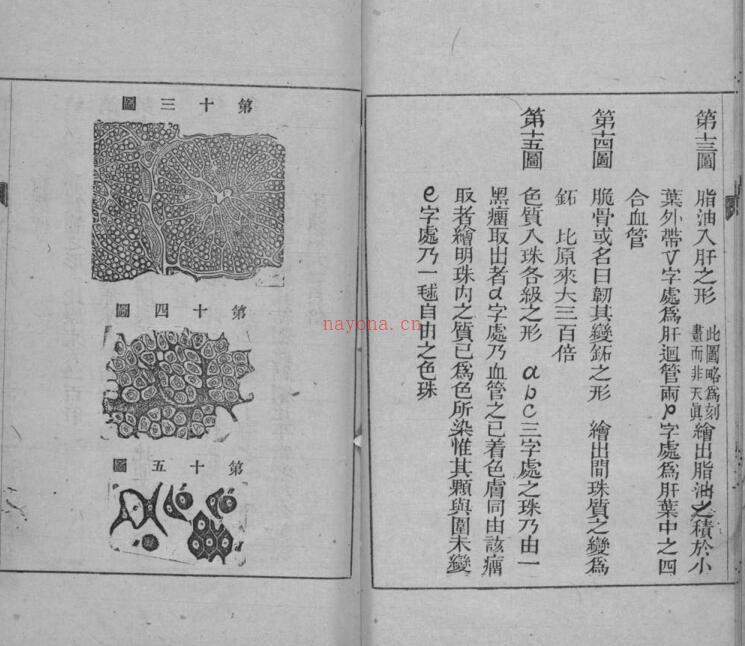 第十三圖 脂油入肝之形 此圖略爲刻畫而非天眞 繪出脂油之積於小
葉外帶V字處爲肝迴管兩P字處爲肝葉中之四
合血管
第十四圖 脆骨或名曰韌其變鉐之形 繪出間珠質之變爲
鉐 比原來大三百倍
第十五圖 色質入珠各級之形 abc三字處之珠乃由一
黑瘤取出者d字處乃血管之已着色膚同由該瘤
取者繪明珠內之質已爲色所染惟其顆與圍未變
e字處乃一毬自由之色珠
第十三圖
第十四圖
第十五圖
nayona.cn